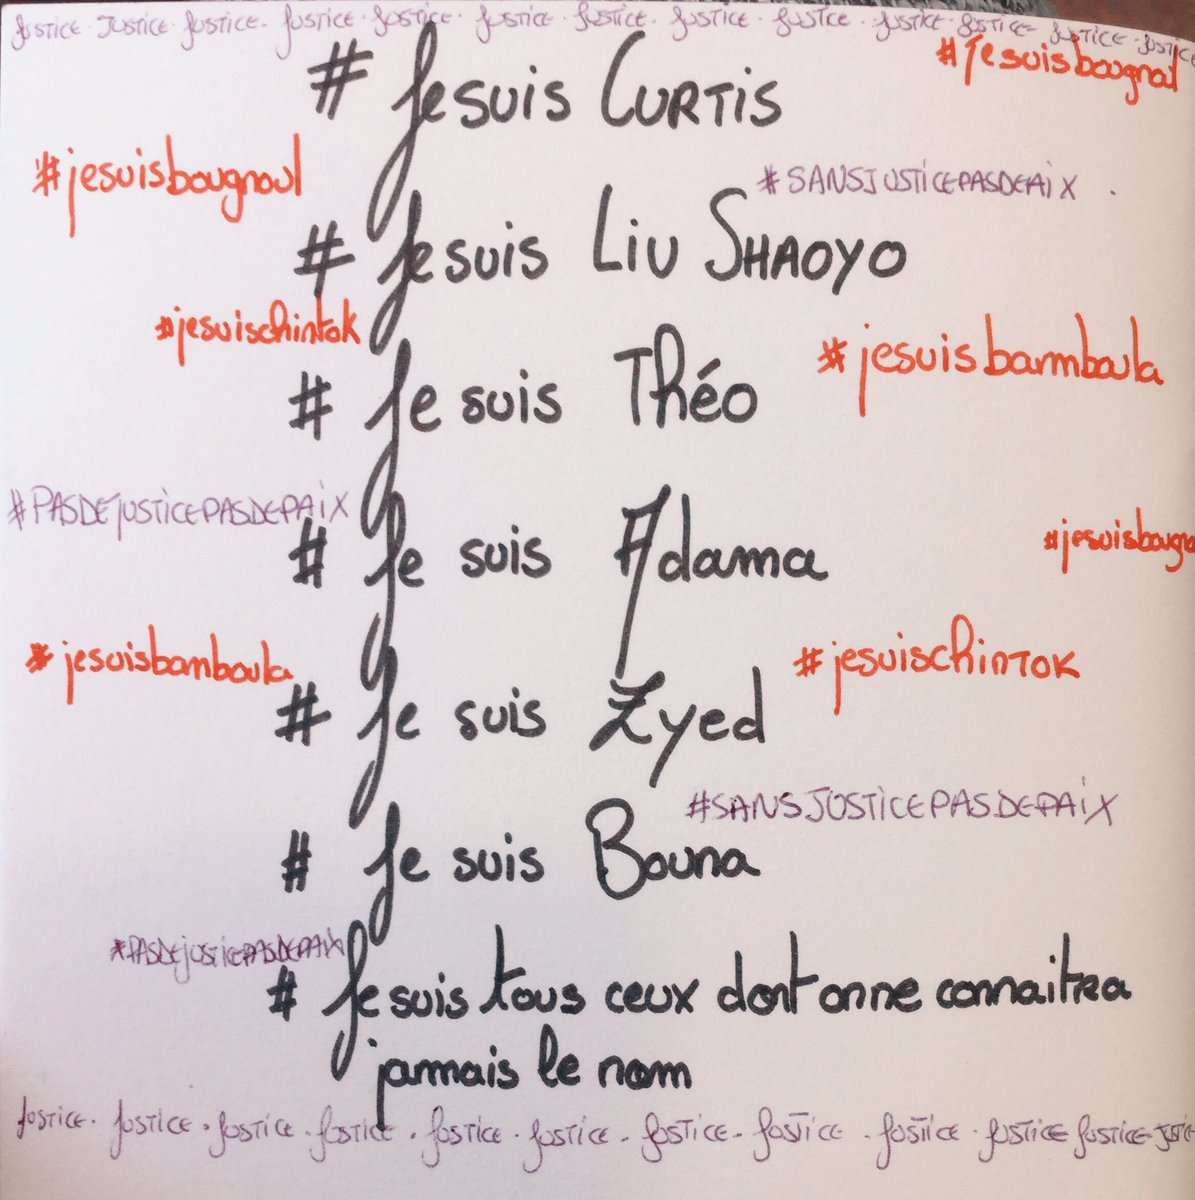 JUSTICE · JUSTICE · JUSTICE · JUSTICE · JUSTICE · JUSTICE · JUSTICE · JUSTICE · JUSTICE · JUSTICE · JUSTICE · JUSTICE · JUSTICE
#Jesuisbougnoul
# Je suis CURTIS
#jesuisbougnoul
#SANSJUSTICEPASDEPAIX
# Je suis LIU SHAOYO
#jesuischintok
#jesuisbamboula
# Je suis Théo
#PASDEJUSTICEPASDEPAIX
#jesuisbougno
# Je suis Adama
#jesuisbamboula
#jesuischintok
# Je suis Zyed
#SANSJUSTICEPASDEPAIX
# Je suis Bouna
#PASDEJUSTICEPASDEPAIX
# Je suis tous ceux dont on ne connaitra
jamais le nom
JUSTICE · JUSTICE · JUSTICE · JUSTICE · JUSTICE · JUSTICE · JUSTICE · JUSTICE · JUSTICE · JUSTICE JUSTICE · JUSTIC